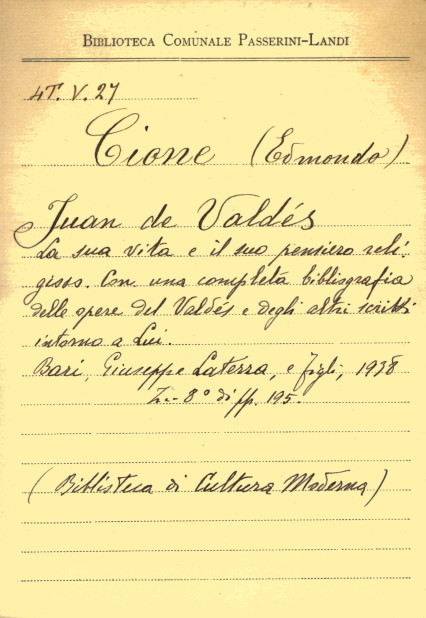 BIBLIOTECA COMUNALE PASSERINI-LANDI
4T. V. 27
Cione (Edmondo)
Juan de Valdés
La sua vita e il suo pensiero reli-
gioso. Con una completa bibliografia
delle opere del Valdés e degli altri scritti
intorno a Lui.
Bari, Giuseppe Laterza, e figli, 1938
In-8° di pp. 195.
(Biblioteca di Cultura Moderna)